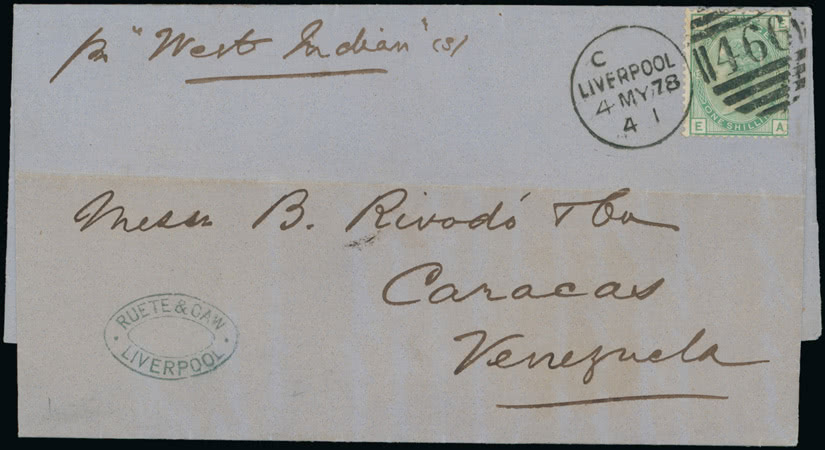 pr "West Indian" (s)
C
LIVERPOOL
4 MY 78
4 1
466
E
ONE SHILLIN
E A
Messrs B. Rivodó & Co
Caracas
Venezuela
RUETE & OAW
LIVERPOOL